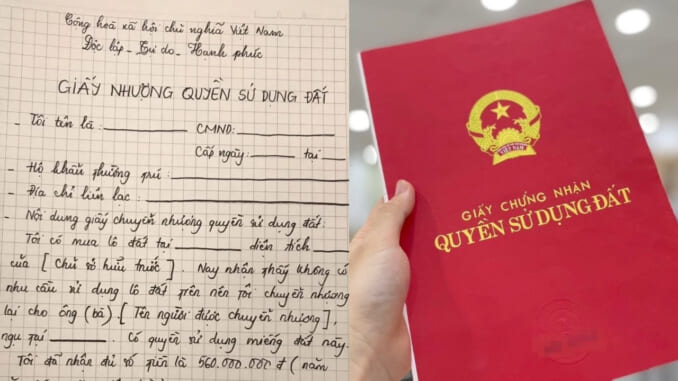 Cộng hoà xã hội chủ nghĩa Việt Nam
Độc lập - Tự do - Hạnh phúc
GIẤY NHƯỢNG QUYỀN SỬ DỤNG ĐẤT
- Tôi tên là: CMND:
Cấp ngày: tại
- Hộ khẩu thường trú:
- Địa chỉ liên lạc:
- Nội dung giấy chuyển nhượng quyền sử dụng đất:
Tôi có mua lô đất tại diện tích
của [Chủ sở hữu trước]. Nay nhận thấy không có
nhu cầu sử dụng lô đất trên nên tôi chuyển nhượng
lại cho ông (bà) [Tên người được chuyển nhượng],
ngụ tại. Có quyền sử dụng miếng đất này.
Tôi đã nhận đủ số tiền là 560.000.000 đ (năm
VIỆT NAM
GIẤY CHỨNG NHẬN
QUYỀN SỬ DỤNG ĐẤT